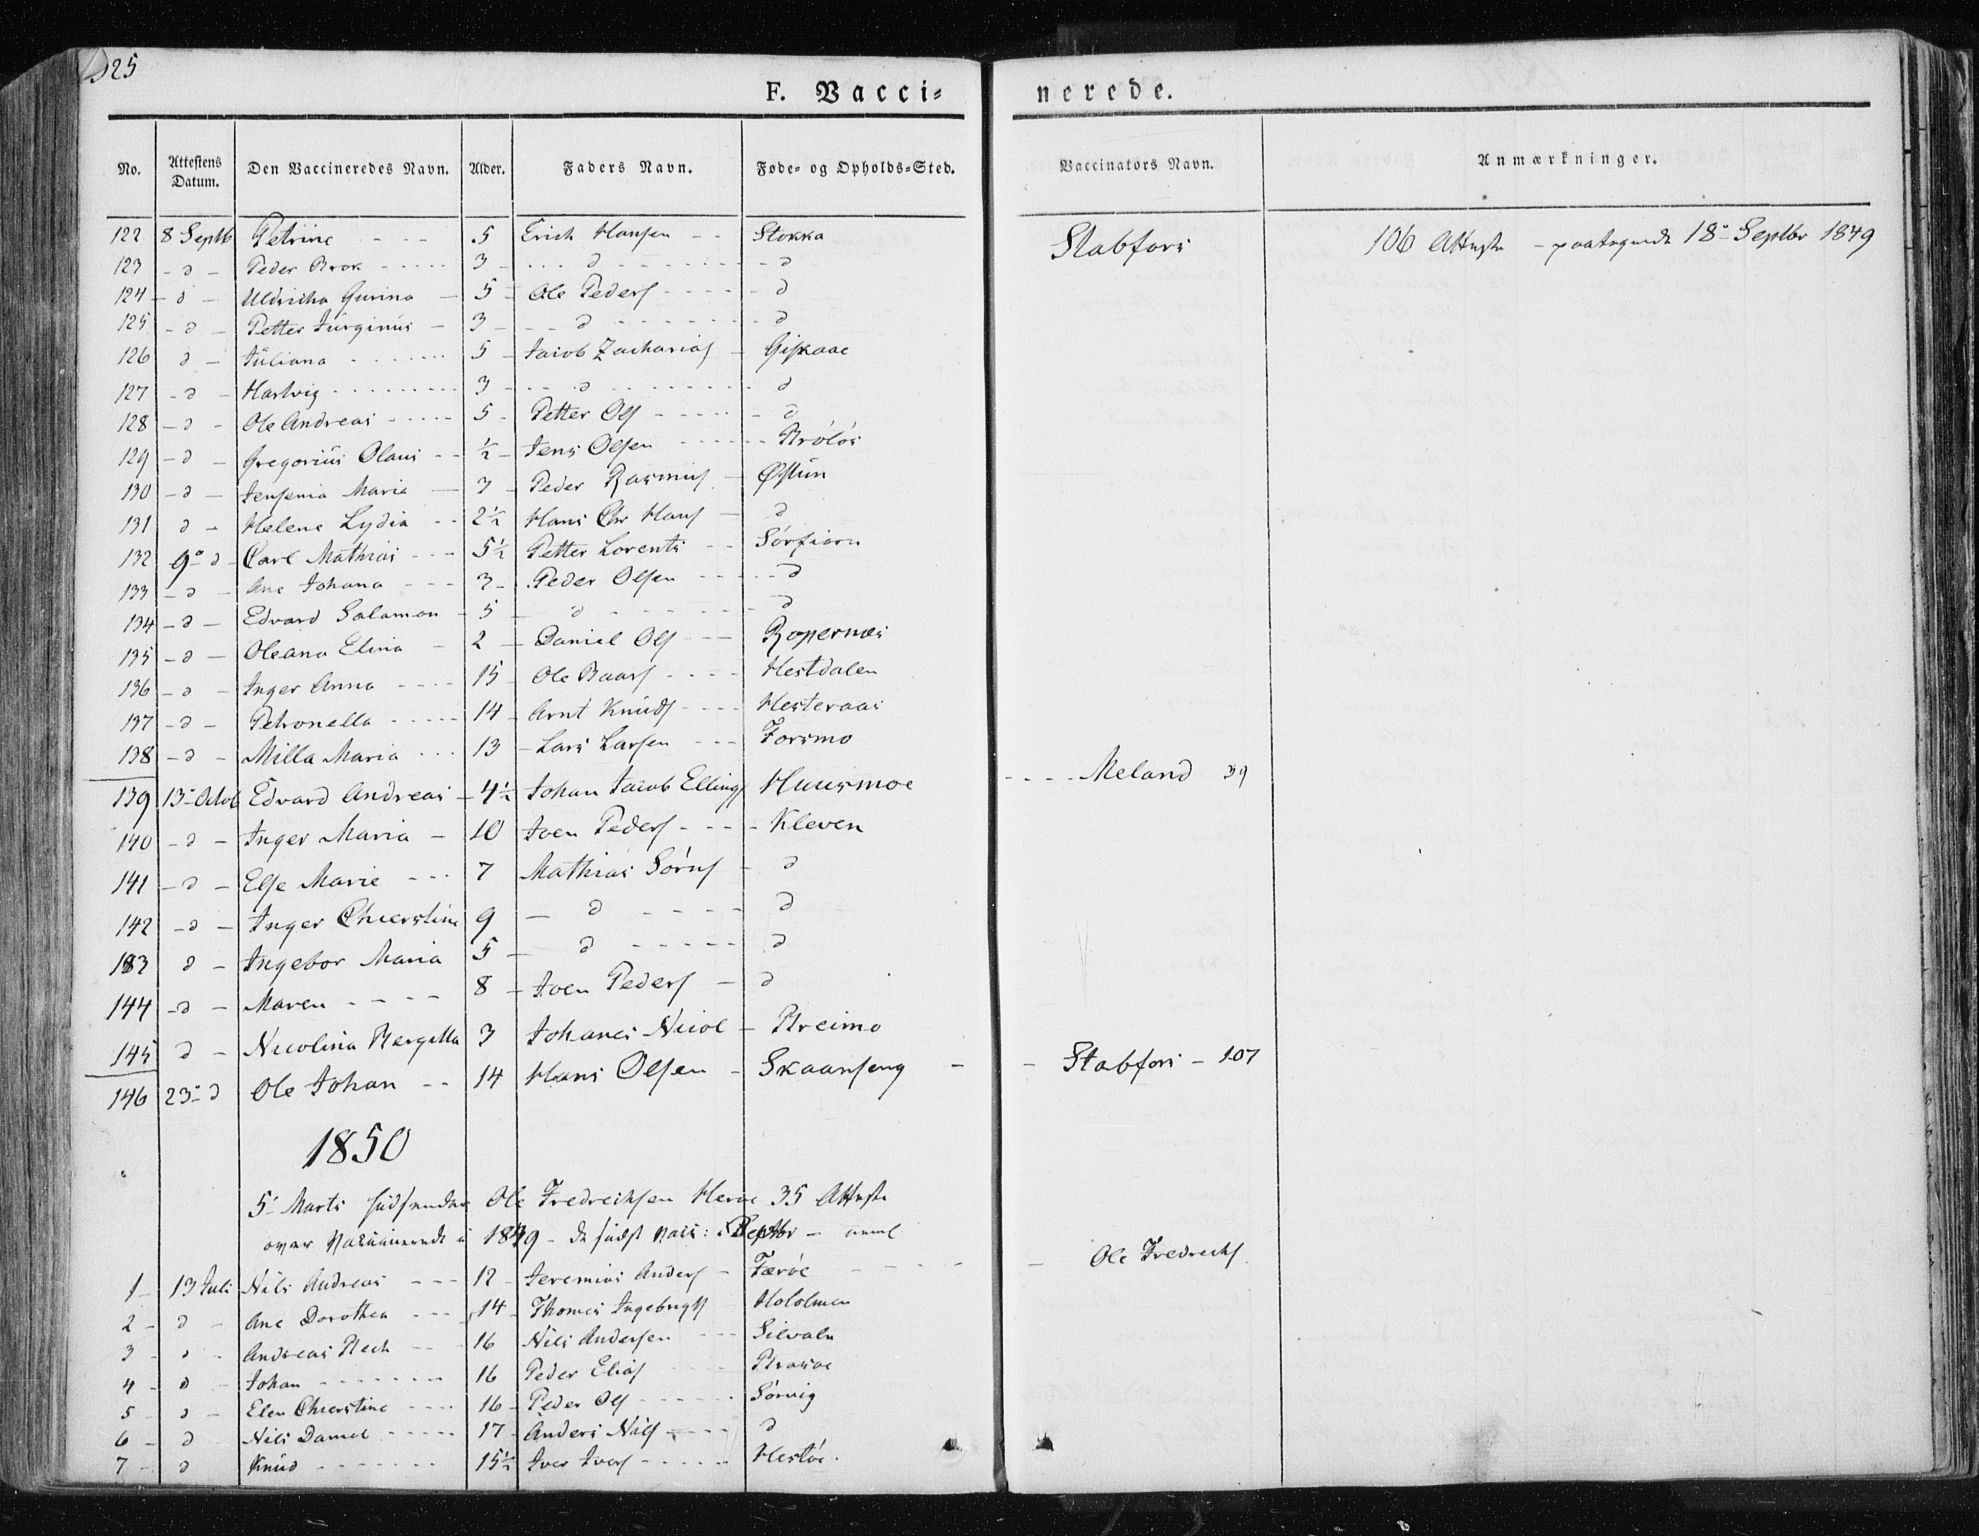 25
F. Vacci= nerede.
No. Attestens Datum. Den Vaccineredes Navn. Alder. Faders Navn. Føde= og Opholds=Sted. Vaccinatørs Navn. Anmærkninger.
122 8 Septb Petrine - - - 5 Erich Hansen - - Stokka Stabfors 106 Atteste - 18- Septbr 1849
123 - d - Peder Brox - - - 3 - - - d - - - d
124 - d - Uldricha Gurina - 5 - Ole Peders - - - d
125 - d - Petter Jürginüs - 3 - - d - - - d
126 d - Jüliana - - - 5 - Jacob Zacharias - Giskaae
127 - d - Hartvig - - - 3 - - - d - - - d
128 - d - Ole Andreas - - - 5 - Petter Ols - - - d
129 - d - Gregoriüs Olaus - - ½ - Jens Olsen - - - Brölös
130 - d - Jensenia Maria - 3 - Peder Rasmus - Østün
131 d - Helene Lydia - - 2½ - Hans Chr Hans - d
132 9de d - Carl Mathias - - - 5½ Petter Lorents - - Sørfiorn
133 - d - Ane Johana - - - 3 - Peder Olsen - - - d
134 - d - Edvard Salamon - 5 - d - - - d
135 - d - Oleana Elina - 2 - Daniel Ols - - - Ropernæs
136 - d - Inger Anna - - - 15 - Ole Baars - - - Hestdalen
137 - d - Petronella - - - 14 - Arnt Knüds - - - Hesteraas
138 - d - Milla Maria - - - 13 - Lars Larsen - - - Forsmo
139 13- Octob Edvard Andreas - 4½ Johan Jacob Ellings Huusmoe - - - Meland 39
140 - d - Inger Maria - 10 Joen Peders - - - Kleven
141 - d - Else Marie - - - 7 Mathias Sörns - d
142 - d - Inger Chierstine 9 - d - - - d
143 d - Ingebor Maria 5 - d - - - d
144 - d - Maren - - - 8 - Joen Peders - d
145 d - Nicolina Bergitta 3 Johanes Nicol - Breimo
146 23- d Ole Johan - - 14 Hans Olsen - Skaanseng - - Stabfors - 107
1850
5- Marts Ole Fredrichsen Herøe 35 Atteste
over Vaccinerede i 1849 - de sidst vacc: Septbr -
1 - 13 Juli Nils Andreas - - - 12 - Jeremias Anders - Færöe - - - Ole Fredrichs
2 - d - Ane Dorothea - - - 14 - Thomas Ingebrigts Hololmen
3 - d - Andreas Hech - - 16 Nils Andersen - - - Silvaln
4 - d - Johan - - - 16 Peder Elias - - - Brasøe
5 - d - Elen Chierstine - - - 16 - Peder Ols - - - Sörvig
6 - d Nils Daniel - - - 17 - Anders Nils - - - d
7 - d Knüd - - - 15½ Iver Ivers - - - Hestöe.